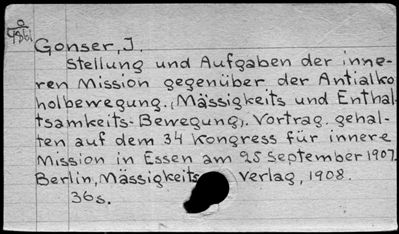 Gonser, J.
Stellung und Aufgaben der inne-
ren Mission gegenüber der Antialko
holbewegung. (Mässigkeits und Enthal-
tsamkeits-Bewegung). Vortrag gehal-
ten auf dem 34 Kongress für innere
Mission in Essen am 25 September 1907.
Berlin, Mässigkeits Verlag, 1908.
36s.